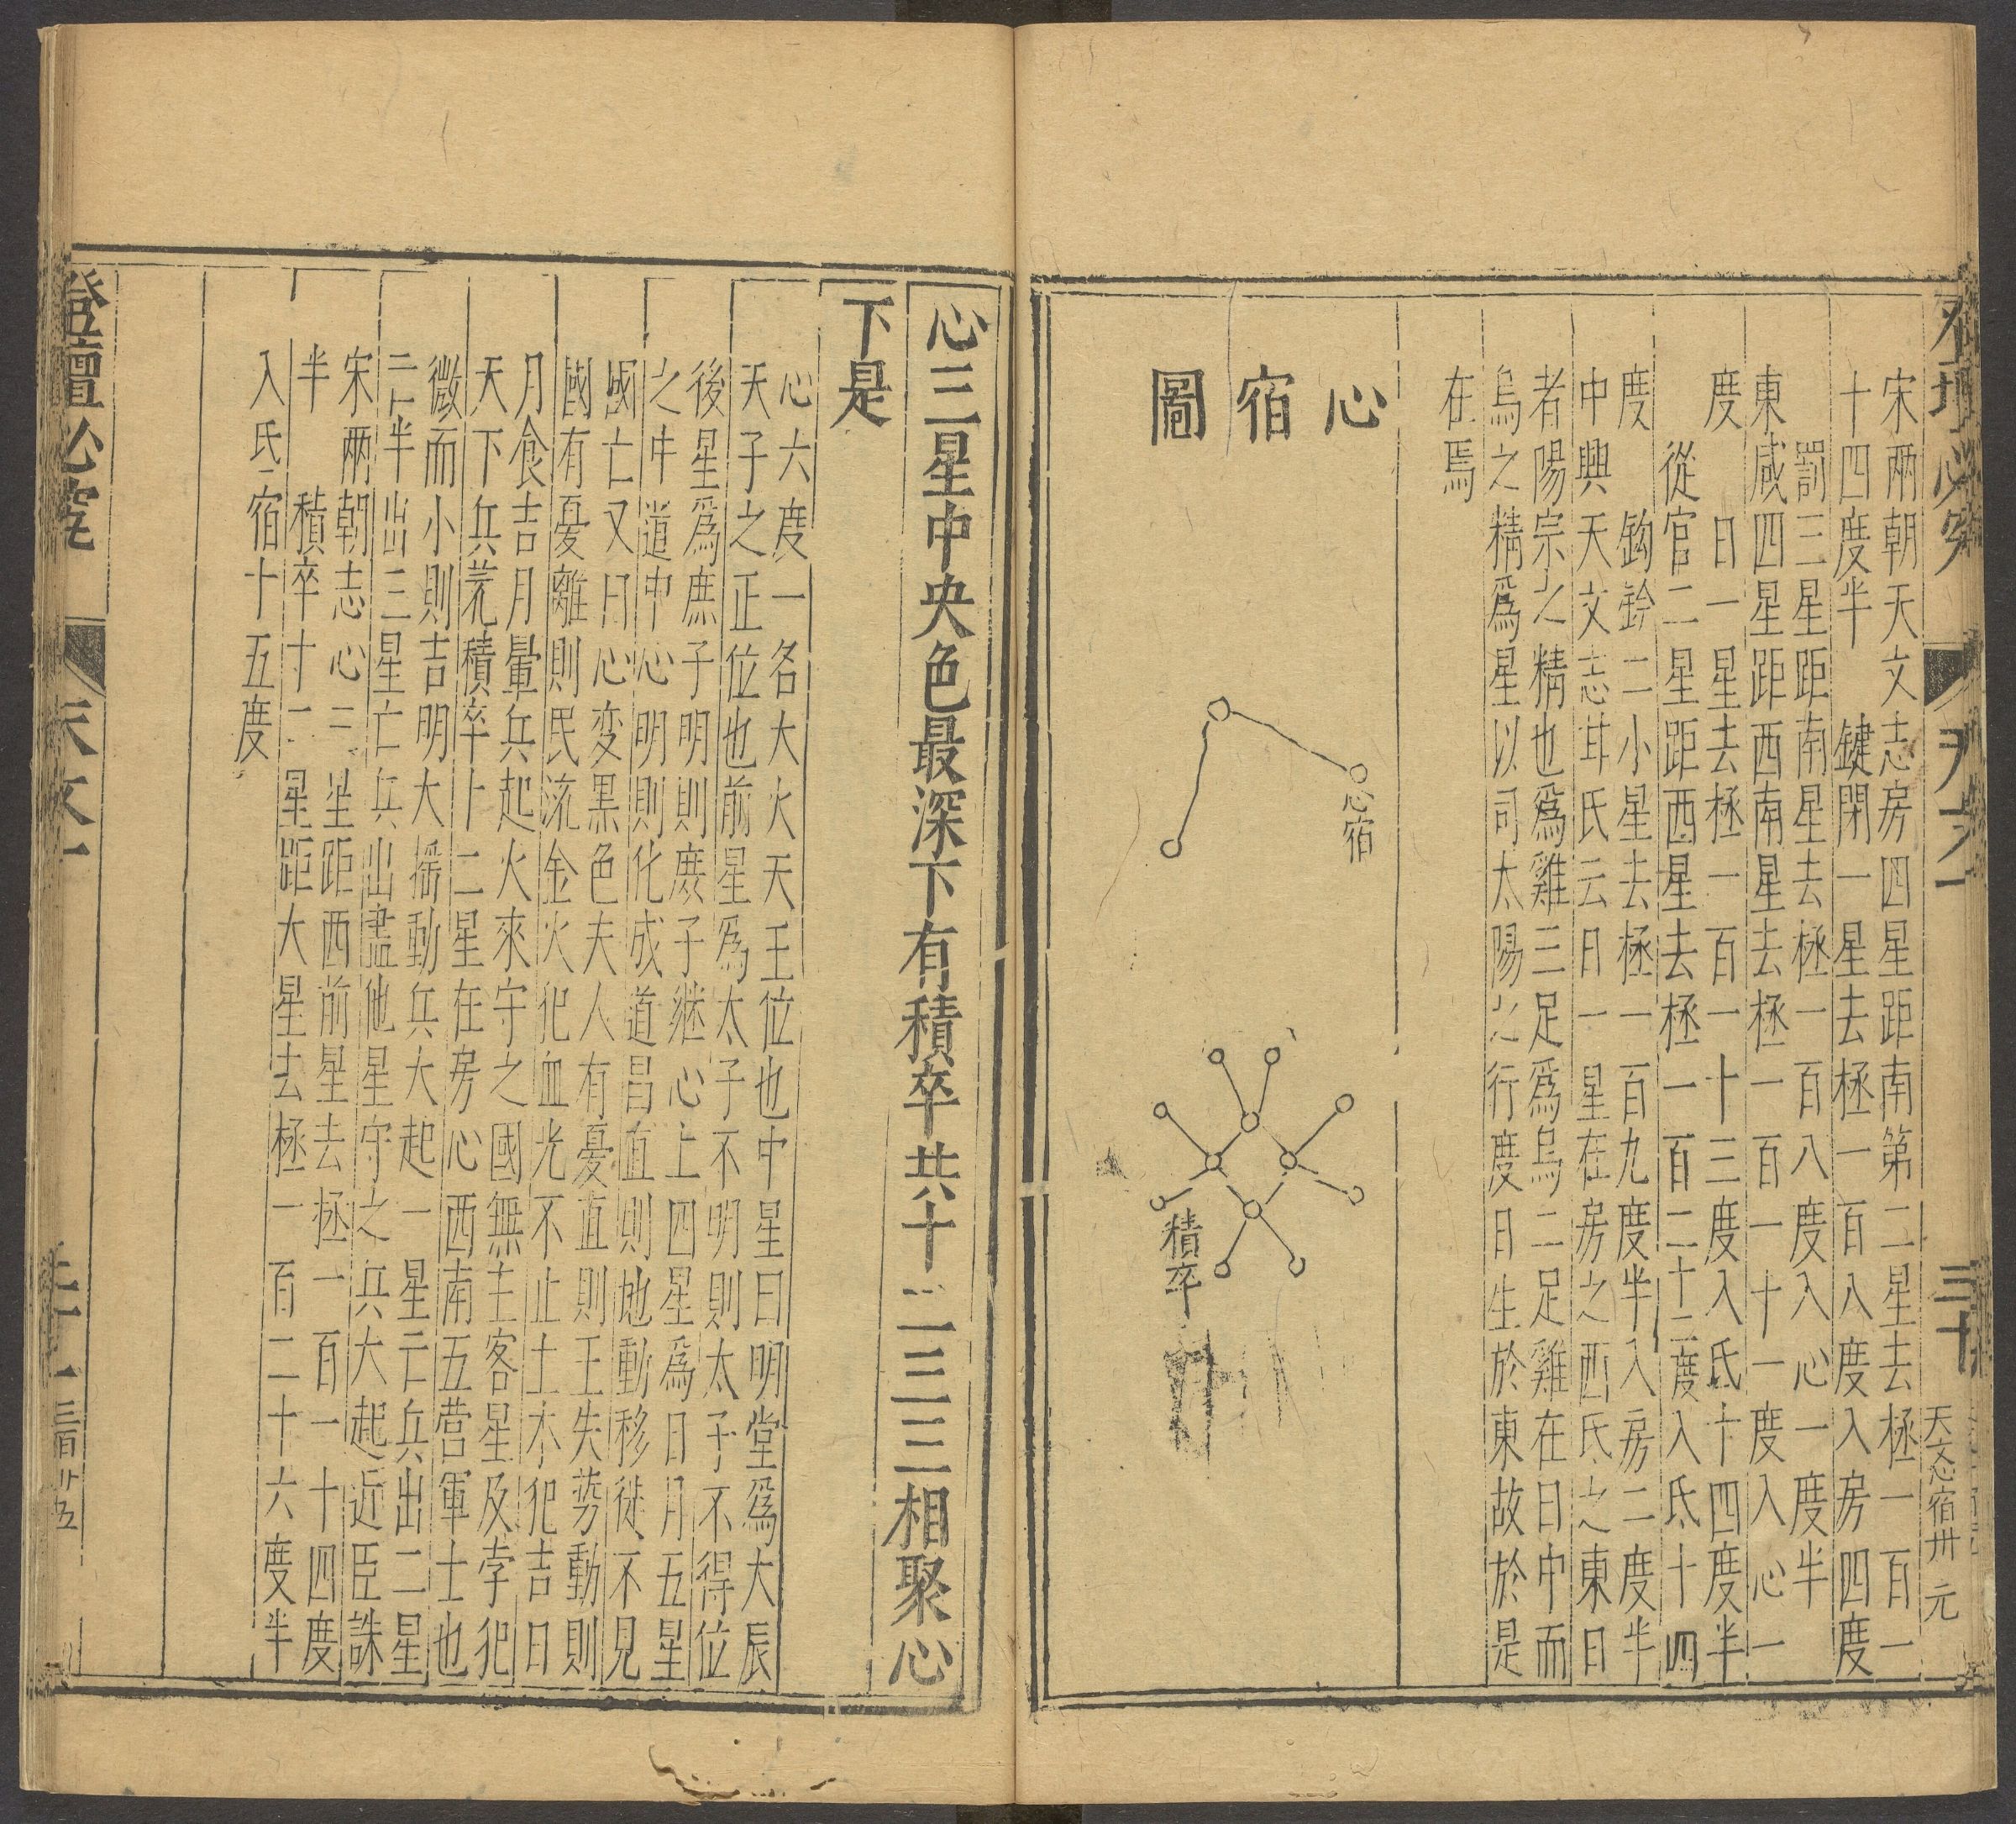 宋兩朝天文志房四星距南第二星去極一百一
十四度半　鍵閉一星去極一百八度入房四度
罰三星距南星去極一百八度入心一度半
東咸四星距西南星去極一百一十一度入心一
度　日一星去極一百一十三度入氐十四度半
從官二星距西星去極一百二十二度入氐十四
度　鈎鈐二小星去極一百九度半入房二度半
中興天文志甘氏云日一星在房之西氐之東日
者陽宗之精也爲雞三足爲烏二足雞在日中而
烏之精爲星以司太陽之行度日生於東故於是
在焉
心宿圖
心宿
積卒
三十
天文心宿卅元
心三星中央色最深下有積卒共十二三三相聚心
下是
心六度一名大火天王位也中星曰明堂爲大辰
天子之正位也前星爲太子不明則太子不得位
後星爲庶子明則庶子継心上四星爲日月五星
之中道中心明則化成道昌直則地動移徙不見
國亡又曰心变黑色夫人有憂直則王失勢動則
國有憂離則民流金火犯血光不止土木犯吉日
月食吉月暈兵起火來守之國無主客星及孛犯
天下兵荒積卒十二星在房心西南五营軍士也
微而小則吉明大摇動兵大起一星亡兵出二星
亡半出三星亡兵出盡他星守之兵大起近臣誅
宋兩朝志心三星距西前星去極一百一十四度
半　積卒十二星距大星去極一百二十六度半
入氐宿十五度
登壇必究
天文一